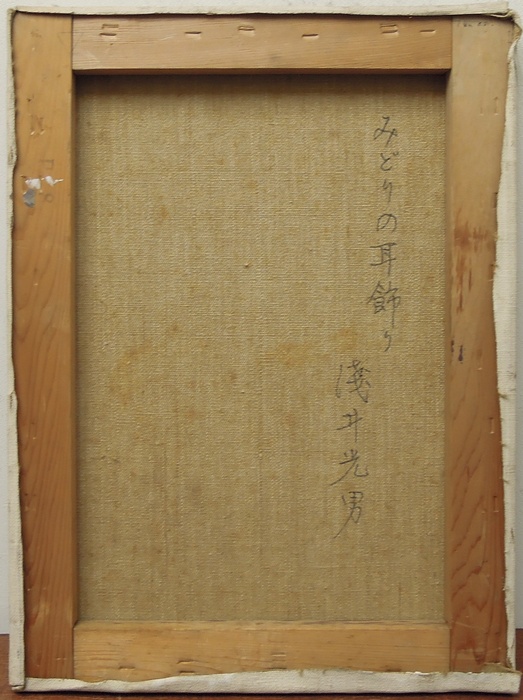 みどりの耳飾り
淺井光男